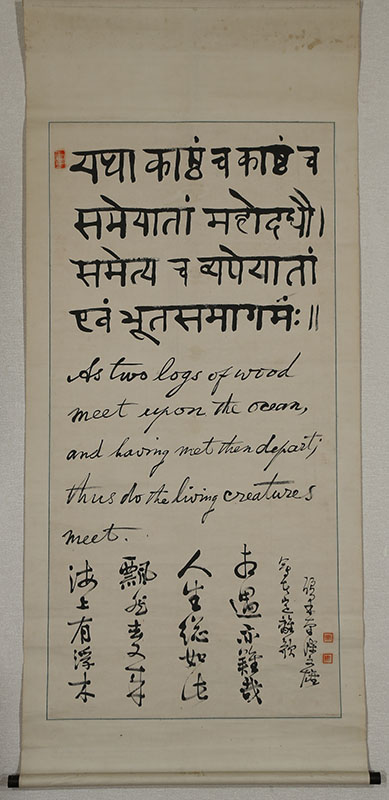 यथा काष्ठं च काष्ठं च
समेयातां महोदधौ।
समेत्य च व्यपेयातां
एवं भूतसमागमंः॥
As two logs of wood
meet upon the ocean,
and having met then depart;
thus do the living creatures
meet.
海上有浮木
飄然去又来
人生総如此
相遇亦難哉